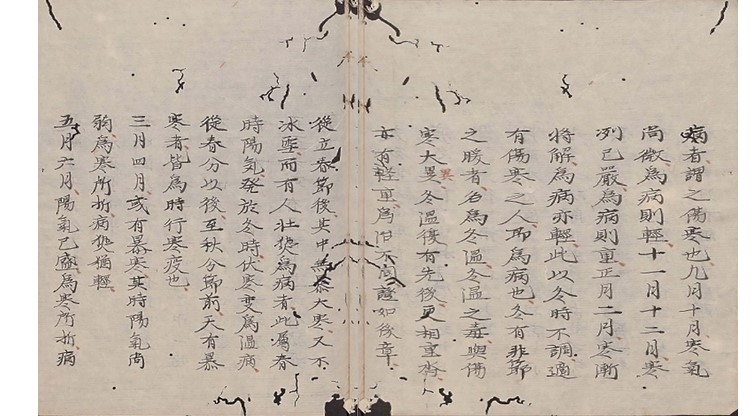 病者謂之傷寒也九月十月寒氣
尚微為病則輕十一月十二月寒
冽已嚴為病則重正月二月寒漸
将解為病亦輕此以冬時不調適
有傷寒之人即為病也冬有非節
之暖者名為冬温冬温之毒與傷
寒大異冬温復有先後更相重沓
異
亦有輕重為治不同證如後章
從立春節後其中無暴大寒又不
冰雪而有人壮熱為病者此屬春
時陽気發於冬時伏寒變為温病
從春分以後至秋分節前天有暴
寒者皆為時行寒疫也
三月四月或有暴寒其時陽氣尚
弱為寒所折病熱猶輕
五月六月陽氣已盛為寒所折病